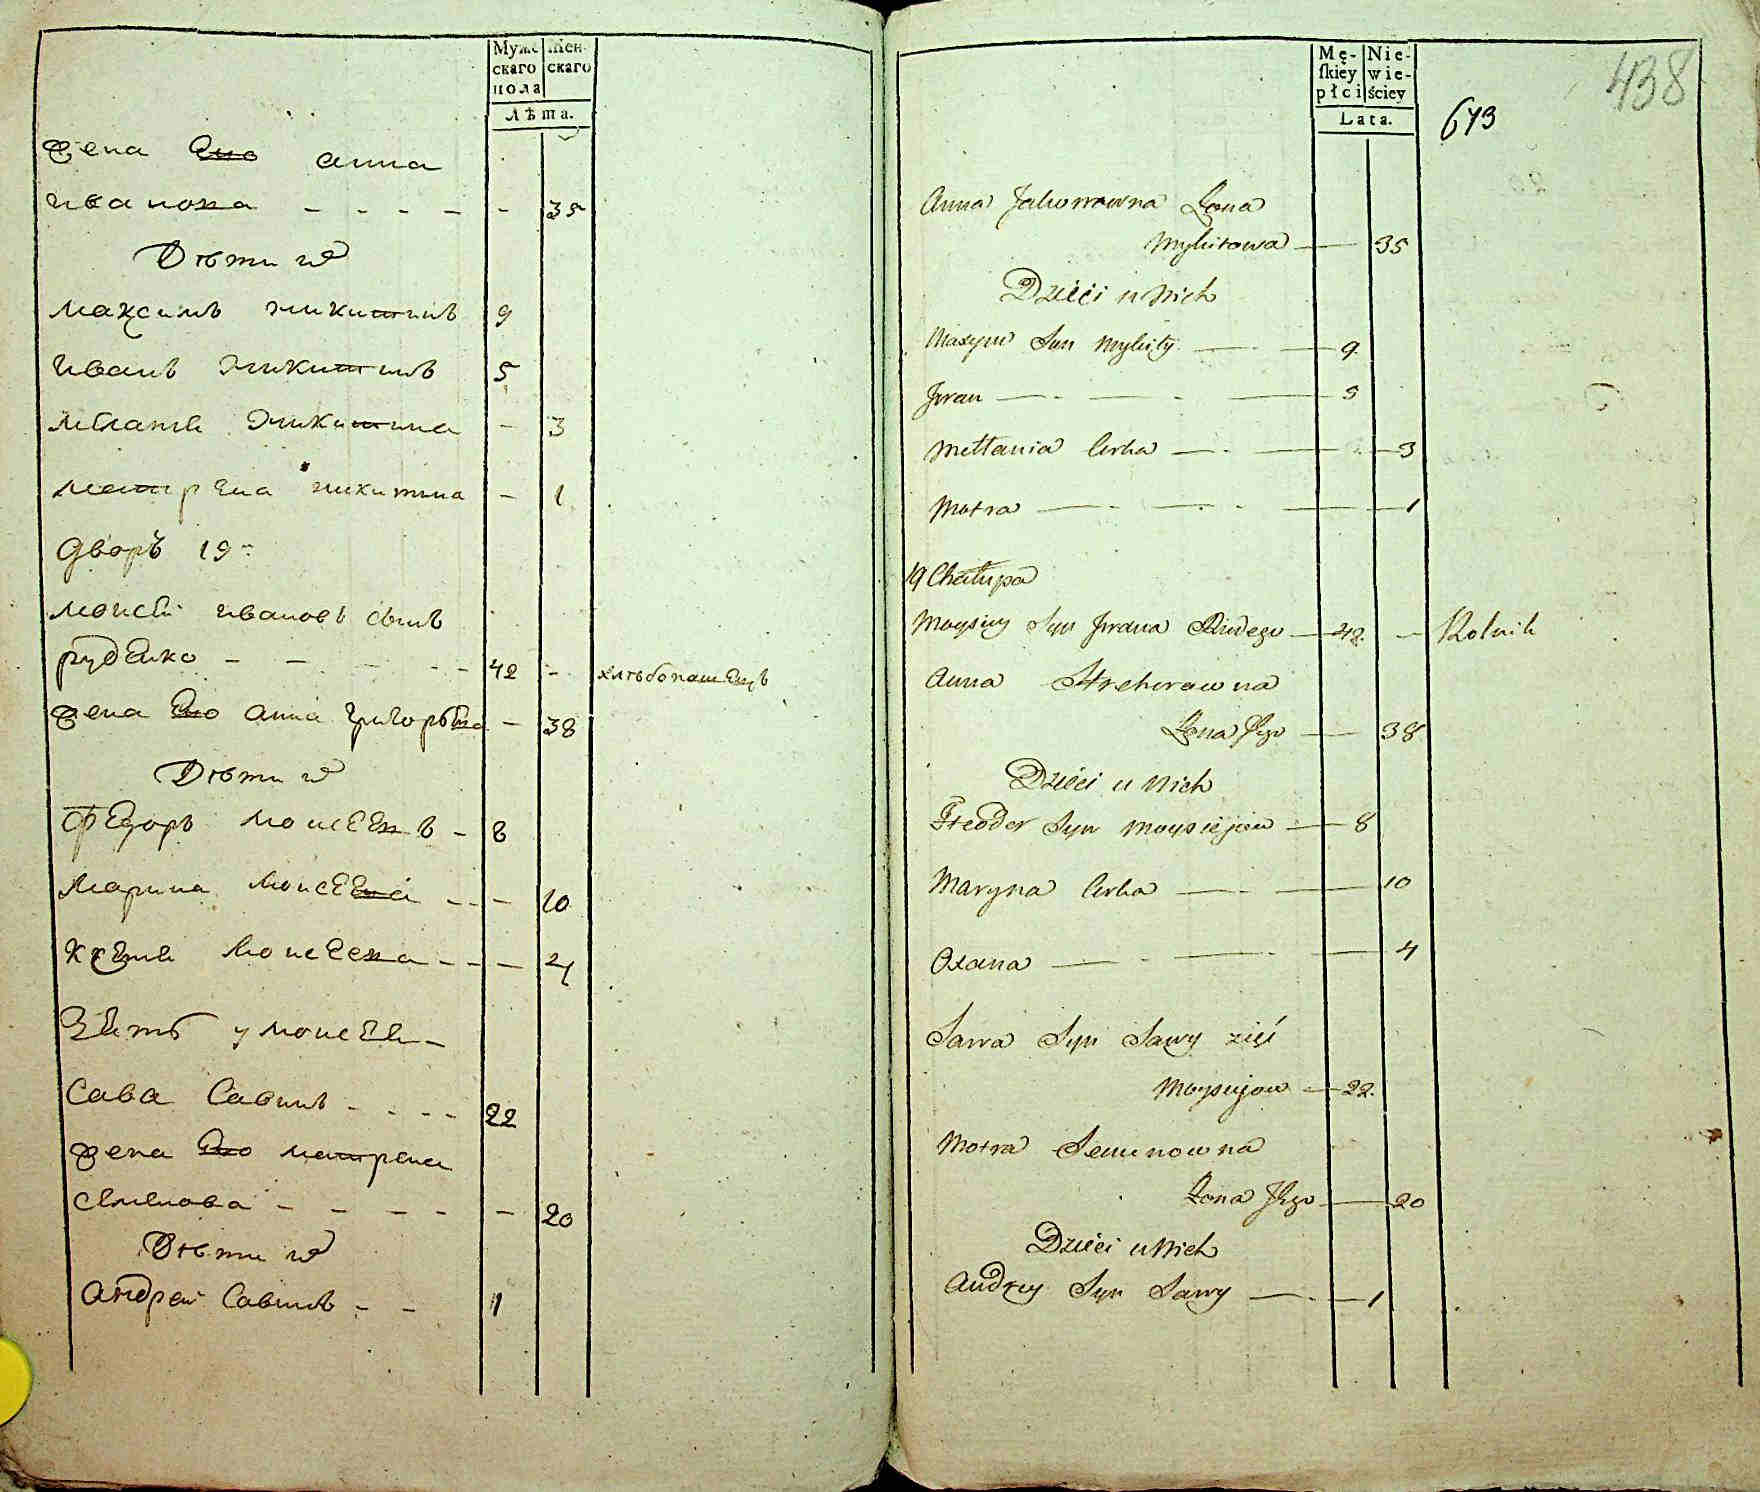 Муже
скаго
пола
Жен-
скаго
Лѣта.
жена Ево анна
иванова - - - - - 35
Дѣти их
максимъ никитинъ 9
иванъ никитинъ 5
меланя никитина - 3
матрена никитина - 1
дворъ 19
моисей ивановъ сынъ
руденко - - - - - 42 - хлѣбопашецъ
жена Ево анна григорьева - 38
Дѣти их
федоръ моисеевъ - 8
марина моисеева - - - 10
ксения моисеева - - - 4
Зять у моисея -
Сава Савинъ - - - - 22
жена Ево матрена
семенова - - - - - 20
Дѣти их
андрей Савинъ - - 1
Mę-
skiey
płci
Nie-
wie-
ściey
Lata.
438
673
Anna Żona
Mykitowa — 35
Dzieci u Nich
Maxym Syn Mykity — 9
Jwan — 5
Mełania Corka — 3
Motra — 1
19 Chałupa
Moysiey Syn Jwana — 42 — Rolnik
Anna
Żona Jego — 38
Dzieci u Nich
Fteodor Syn Moysiejow — 8
Maryna Corka — 10
Oxana — 4
Sawa Syn Sawy zięć
Moysiejow — 22
Motra Semenowna
Żona Jego — 20
Dzieci u Nich
Andrey Syn Sawy — 1